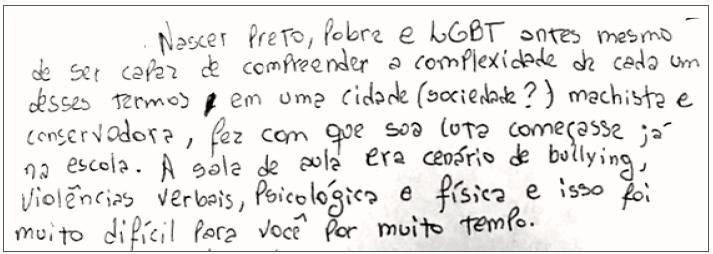 Nascer Preto, Pobre e LGBT antes mesmo
de ser capaz de compreender a complexidade de cada um
desses termos, em uma cidade (sociedade?) machista e
conservadora, fez com que sua luta começasse já
na escola. A sala de aula era cenário de bullying,
violências verbais, Psicológica e física e isso foi
muito difícil para você por muito tempo.